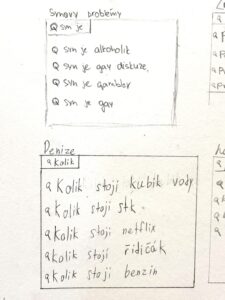 Smarv problémy
Q sm je
Q sm je alkoholik
Q sm je gay diskuze,
Q sm je gambler
Q sm je gay
Denize
Q kolik
Q Kolik stojí kubík vody
Q Kolik stojí stk.
Q Kolik stojí netflix
Q kolik stojí řidičák
Q kolik stojí benzin